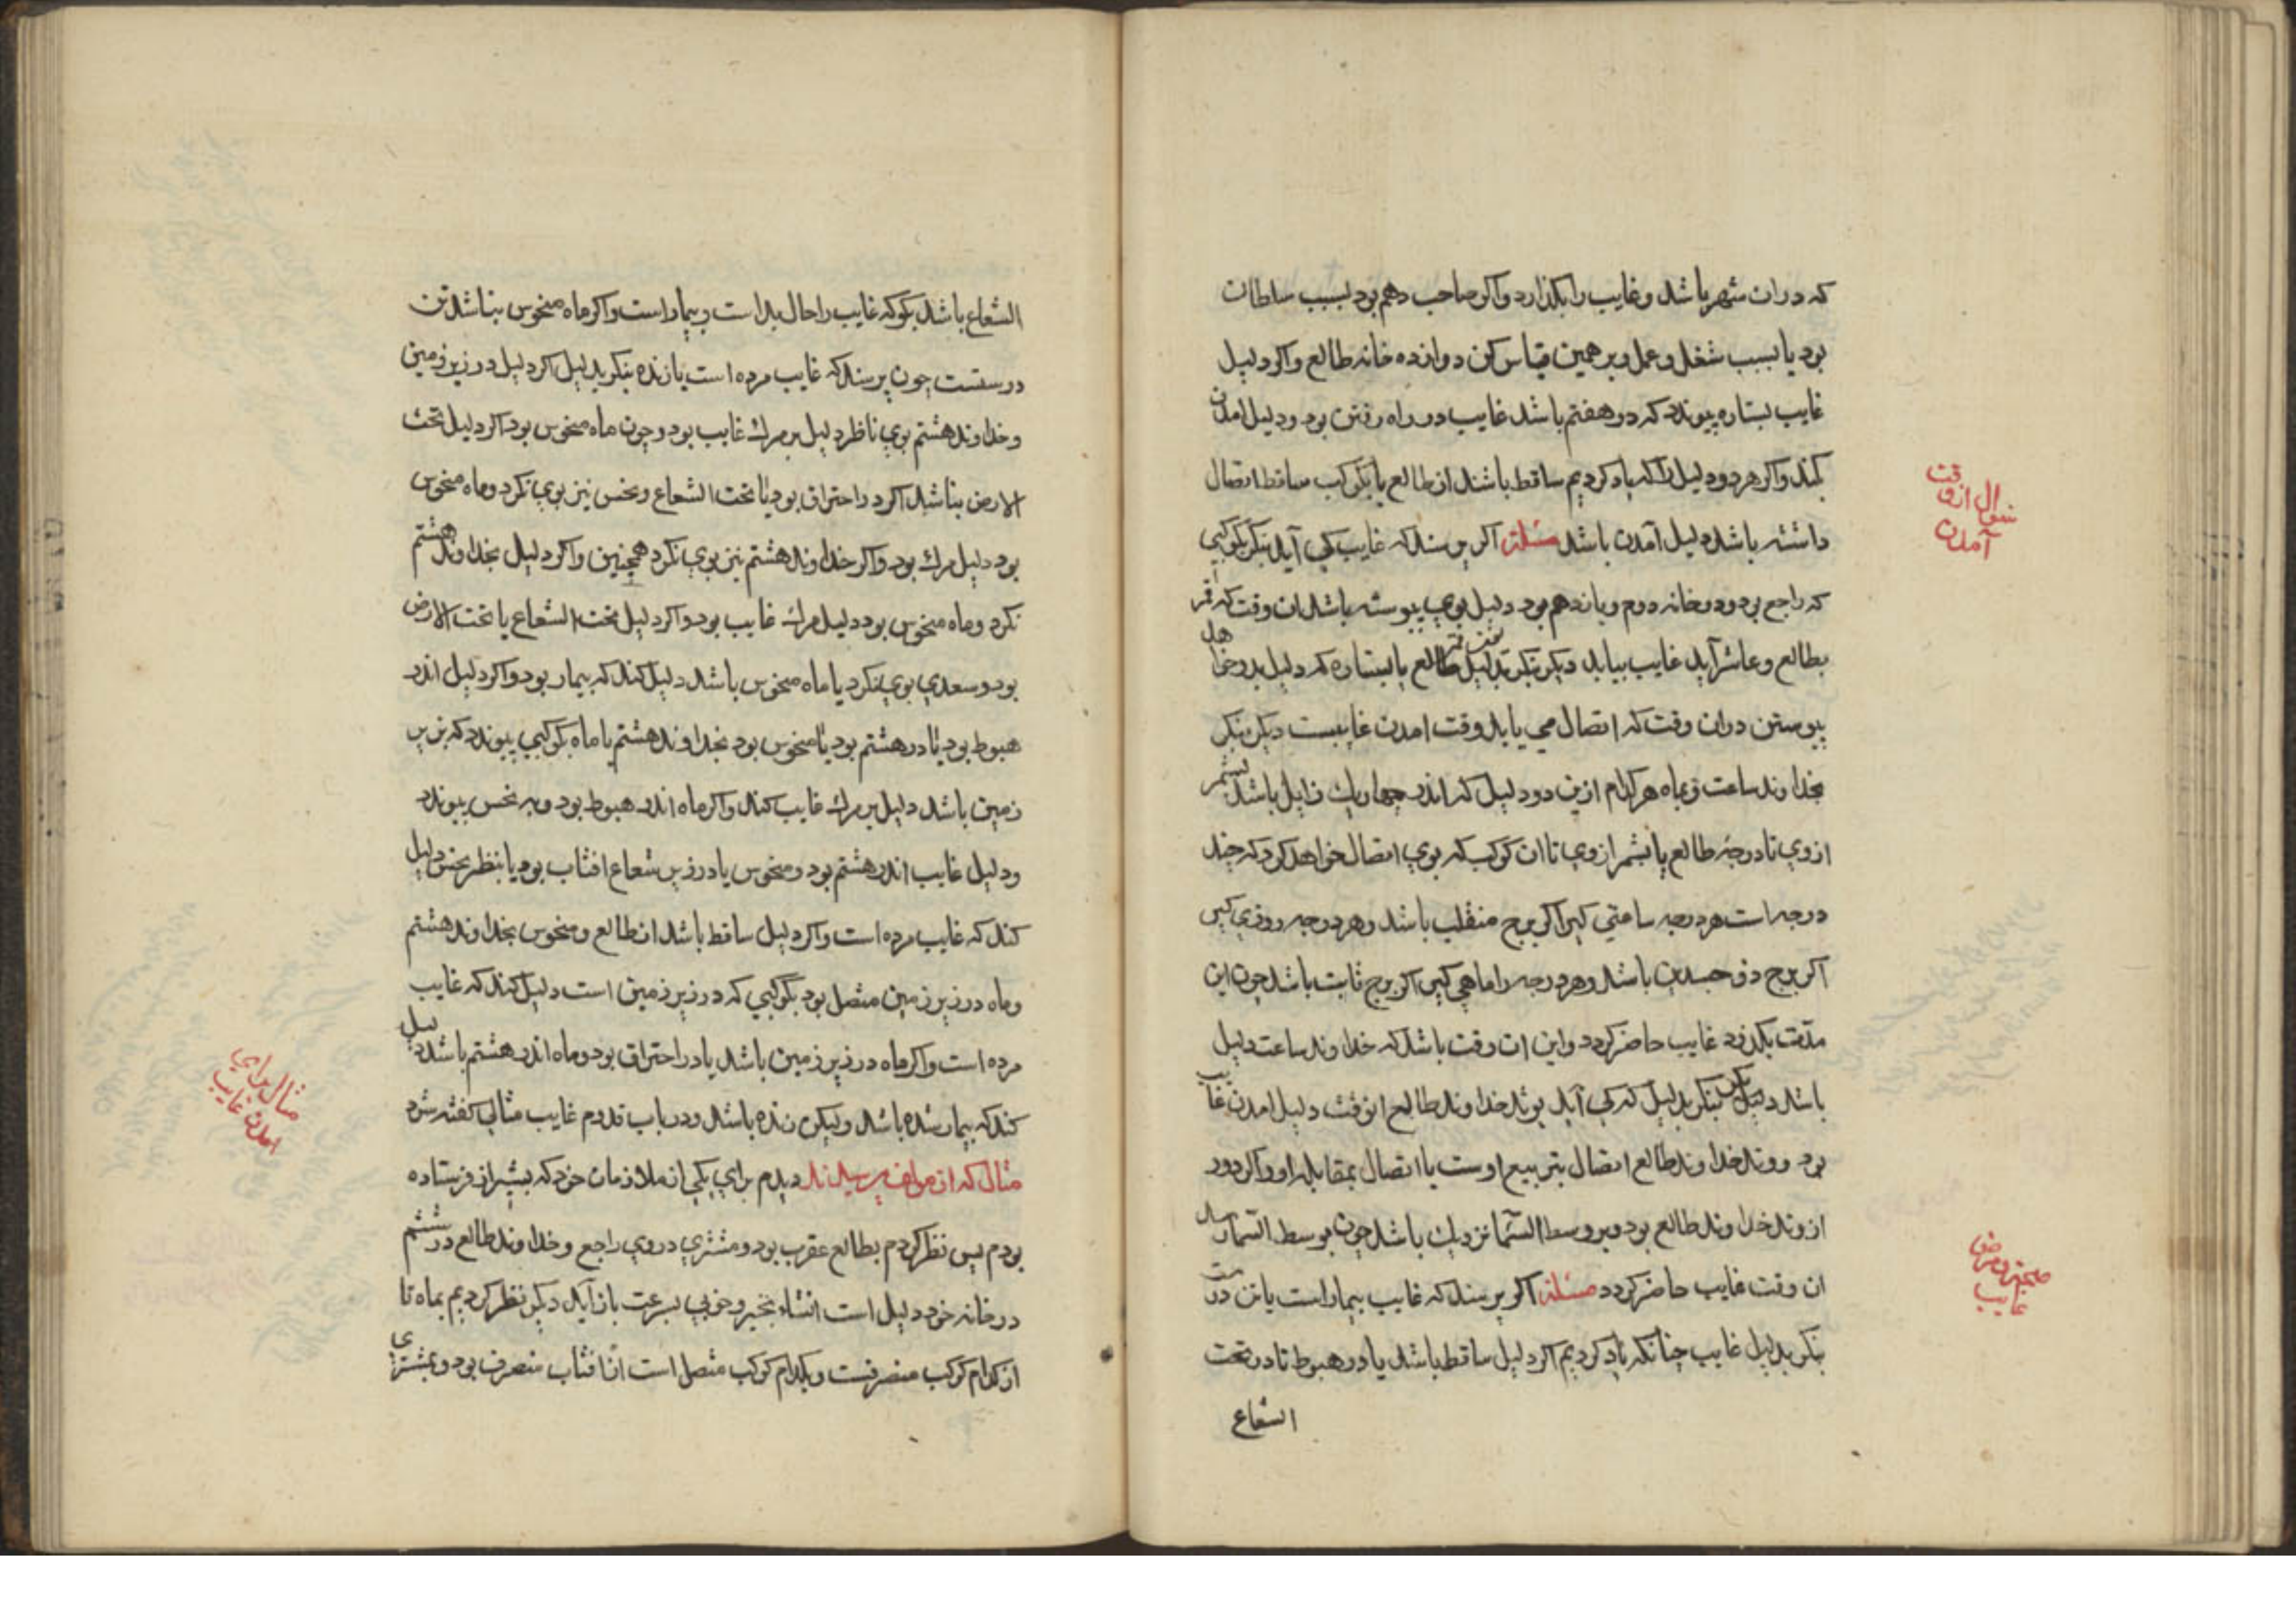 که در ان شهر باشد و غایب را بگذارد واکر صاحب دهم بود بسبب سلطان
بود یا بسبب شغل و عمل و بر همین قیاس کن دوازده خانه طالع واکر دلیل
غایب بستاره پیوندد که در هفتم باشد غایب در راه رفتن بود و دلیل امدن
کند واکر هر دو دلیل را که یاد کردیم ساقط باشند از طالع یا بکوکب ساقط اتصال
داشته باشد دلیل آمدن باشد مسئلة اکر پرسند که غایب کی آید بنکر بکوکبی
که راجع بود و در خانه دوم و یازدهم بود دلیل بوی پیوسته باشد ان وقت که قمر
بطالع و عاشر آید غایب بیاید دیکر بنکر بدلیل طالع یا بستاره که دلیل بدو خواهد
پیوستن دران وقت که اتصال می یابد وقت امدن غایبست دیکر بنکر
بخداوند ساعت و بماه هر کدام ازین دو دلیل که اندر چهار یک زایل باشد بشمر
از وی تا درجه طالع یا بشمر از وی تا ان کوکب که بوی اتصال خواهد کرد که چند
درجه است هر درجه ساعتی کیر اکر برج منقلب باشد و هر درجه روزی کیر
اکر برج ذو جسدین باشد و هر درجه را ماهی کیر اکر برج ثابت باشد چون این
مدت بکذرد غایب حاضر کردد و این ان وقت باشد که خداوند ساعت دلیل
باشد دیکر بنکر بدلیل که کی آید بوتد خداوند طالع انوقت دلیل امدن غایب
بود و وتد خداوند طالع اتصال بتربیع اوست یا اتصال بمقابله او واکر دور
از وتد خداوند طالع بود و بر وسط السما نزدیک باشد چون بوسط السما رسد
ان وقت غایب حاضر کردد مسئلة اکر پرسند که غایب بیمار است یا تن درست
بنکر بدلیل غایب چنانکه یاد کردیم اکر دلیل ساقط باشد یا در هبوط تا در تحت
الشعاع
سؤال از وقت
آمدن
صحت و مرض
غایب
الشعاع باشد بکو که غایب را حال بد است و بیمار است واکر ماه منحوس نباشد تن
درستست چون پرسند که غایب مرده است یا زنده بنکر بدلیل اکر دلیل در زیر زمین
و خداوند هشتم بوی ناظر دلیل بر مرک غایب بود و چون ماه منحوس بود اکر دلیل تحت
الارض نباشد اکر در احتراق بود یا تحت الشعاع و نحس نیز بوی نکرد و ماه منحوس
بود دلیل مرک بود واکر خداوند هشتم نیز بوی نکرد همچنین واکر دلیل بخداوند هشتم
نکرد و ماه منحوس بود دلیل مرک غایب بود واکر دلیل تحت الشعاع یا تحت الارض
بود و سعدی بوی نکرد یا ماه منحوس باشد دلیل کند که بیمار بود واکر دلیل اندر
هبوط بود یا در هشتم بود یا منحوس بود بخداوند هشتم یا ماه بکوکبی پیوندد که بزیر
زمین باشد دلیل بر مرک غایب کند واکر ماه اندر هبوط بود و به نحس پیوندد
و دلیل غایب اندر هشتم بود و منحوس یا در زیر شعاع افتاب بود یا بنظر نحس دلیل
کند که غایب مرده است واکر دلیل ساقط باشد از طالع و منحوس بخداوند هشتم
و ماه در زیر زمین متصل بود بکوکبی که در زیر زمین است دلیل کند که غایب
مرده است واکر ماه در زیر زمین باشد یا در احتراق بود و ماه اندر هشتم باشد دلیل
کند که بیمار شده باشد ولیکن زنده باشد و در باب قدوم غایب مثالی کفته شود
مثال که از مولف پرسیدند دیدم برای یکی از ملازمان خود که بشیراز فرستاده
بودم پس نظر کردم بطالع عقرب بود و مشتری در وی راجع و خداوند طالع در ششم
در خانه خود دلیل است انشاء بخیر و خوبی بسرعت باز آید دیکر نظر کردیم بماه تا
از کدام کوکب منصرفست و بکدام کوکب متصل است از افتاب منصرف بود و بمشتری
مثال برای
امدن غایب